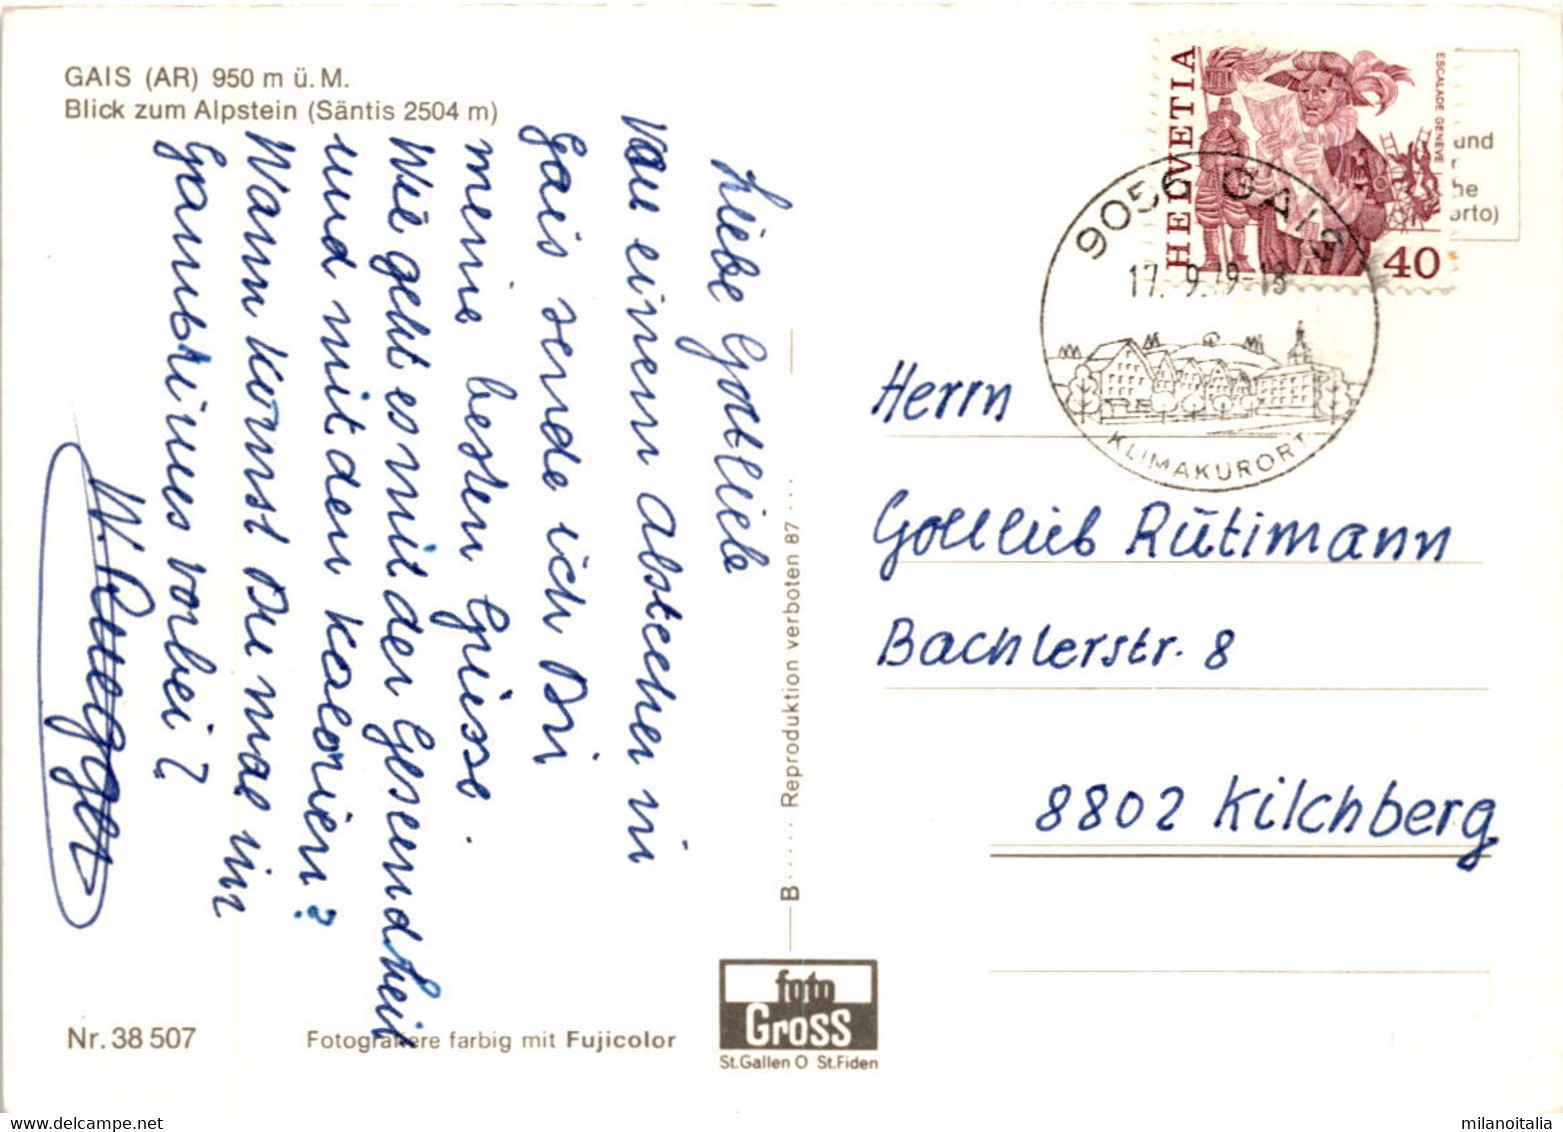 GAIS (AR) 950 m ü. M.
Blick zum Alpstein (Säntis 2504 m)
Liebe Gottlieb
Von einem Abstecher in
Gais sende ich Dir
meine besten Grüsse.
Wie geht es mit der Gesundheit
und mit den Kalorien?
Wann komst Du mal im
Gambrinus vorbei?
Nr. 38 507
Fotografiere farbig mit Fujicolor
B
Reproduktion verboten 87
foto
Gross
St.Gallen O St.Fiden
HELVETIA
ESCALADE GENÈVE
40
9056 GAIS
17. 9. 79-18
KLIMAKURORT
und
he
orto)
Herrn
Gottlieb Rütimann
Bachlerstr. 8
8802 Kilchberg
milanoitalia